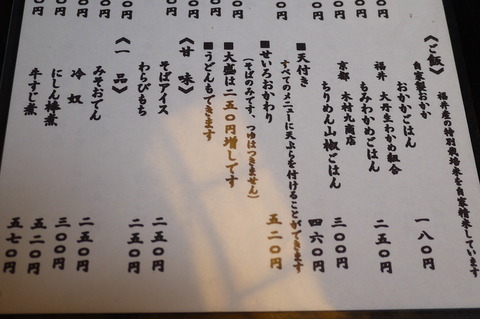 《ご飯》
福井産の特別栽培米を自家精米しています
自家製おかか
おかかごはん
一八〇円
福井 大丹生わかめ組合
もみわかめごはん
二五〇円
京都 木村九商店
ちりめん山椒ごはん
三〇〇円
■天付き
すべてのメニューに天ぷらを付けることができます
四六〇円
■せいろおかわり
(そばのみです、つゆはつきません)
五二〇円
■大盛は二五〇円増しです
■うどんもできます
《甘味》
そばアイス
二五〇円
わらびもち
二五〇円
《一品》
みそおでん
二五〇円
冷奴
三〇〇円
にしん棒煮
五二〇円
牛すじ煮
五七〇円